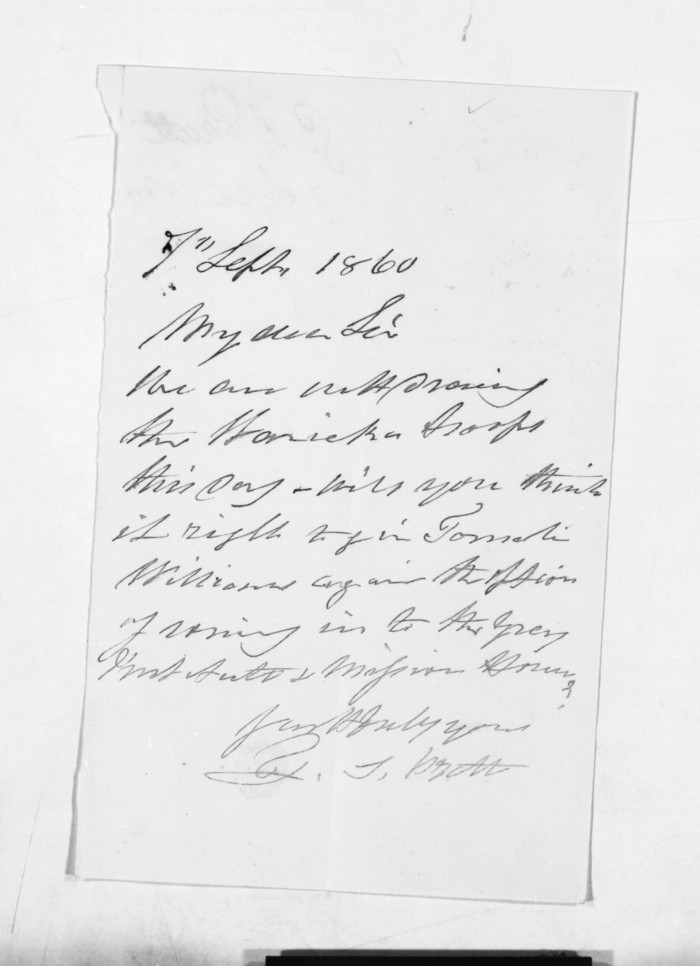 7" Sept. 1860
My dear Sir
We are withdrawing
the Waireka troops
this day & will you think
it right to give Tamati
Williams again the option
of coming in to the Grey
Institute & Mission House?
faithfully yours
T. S. Pratt